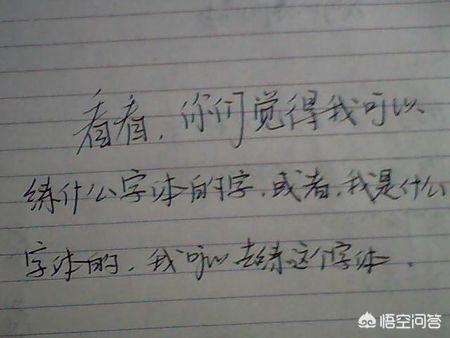 看看，你们觉得我可以
练什么字体的字，或者，我是什么
字体的，我可以去练这个字体．
悟空问答